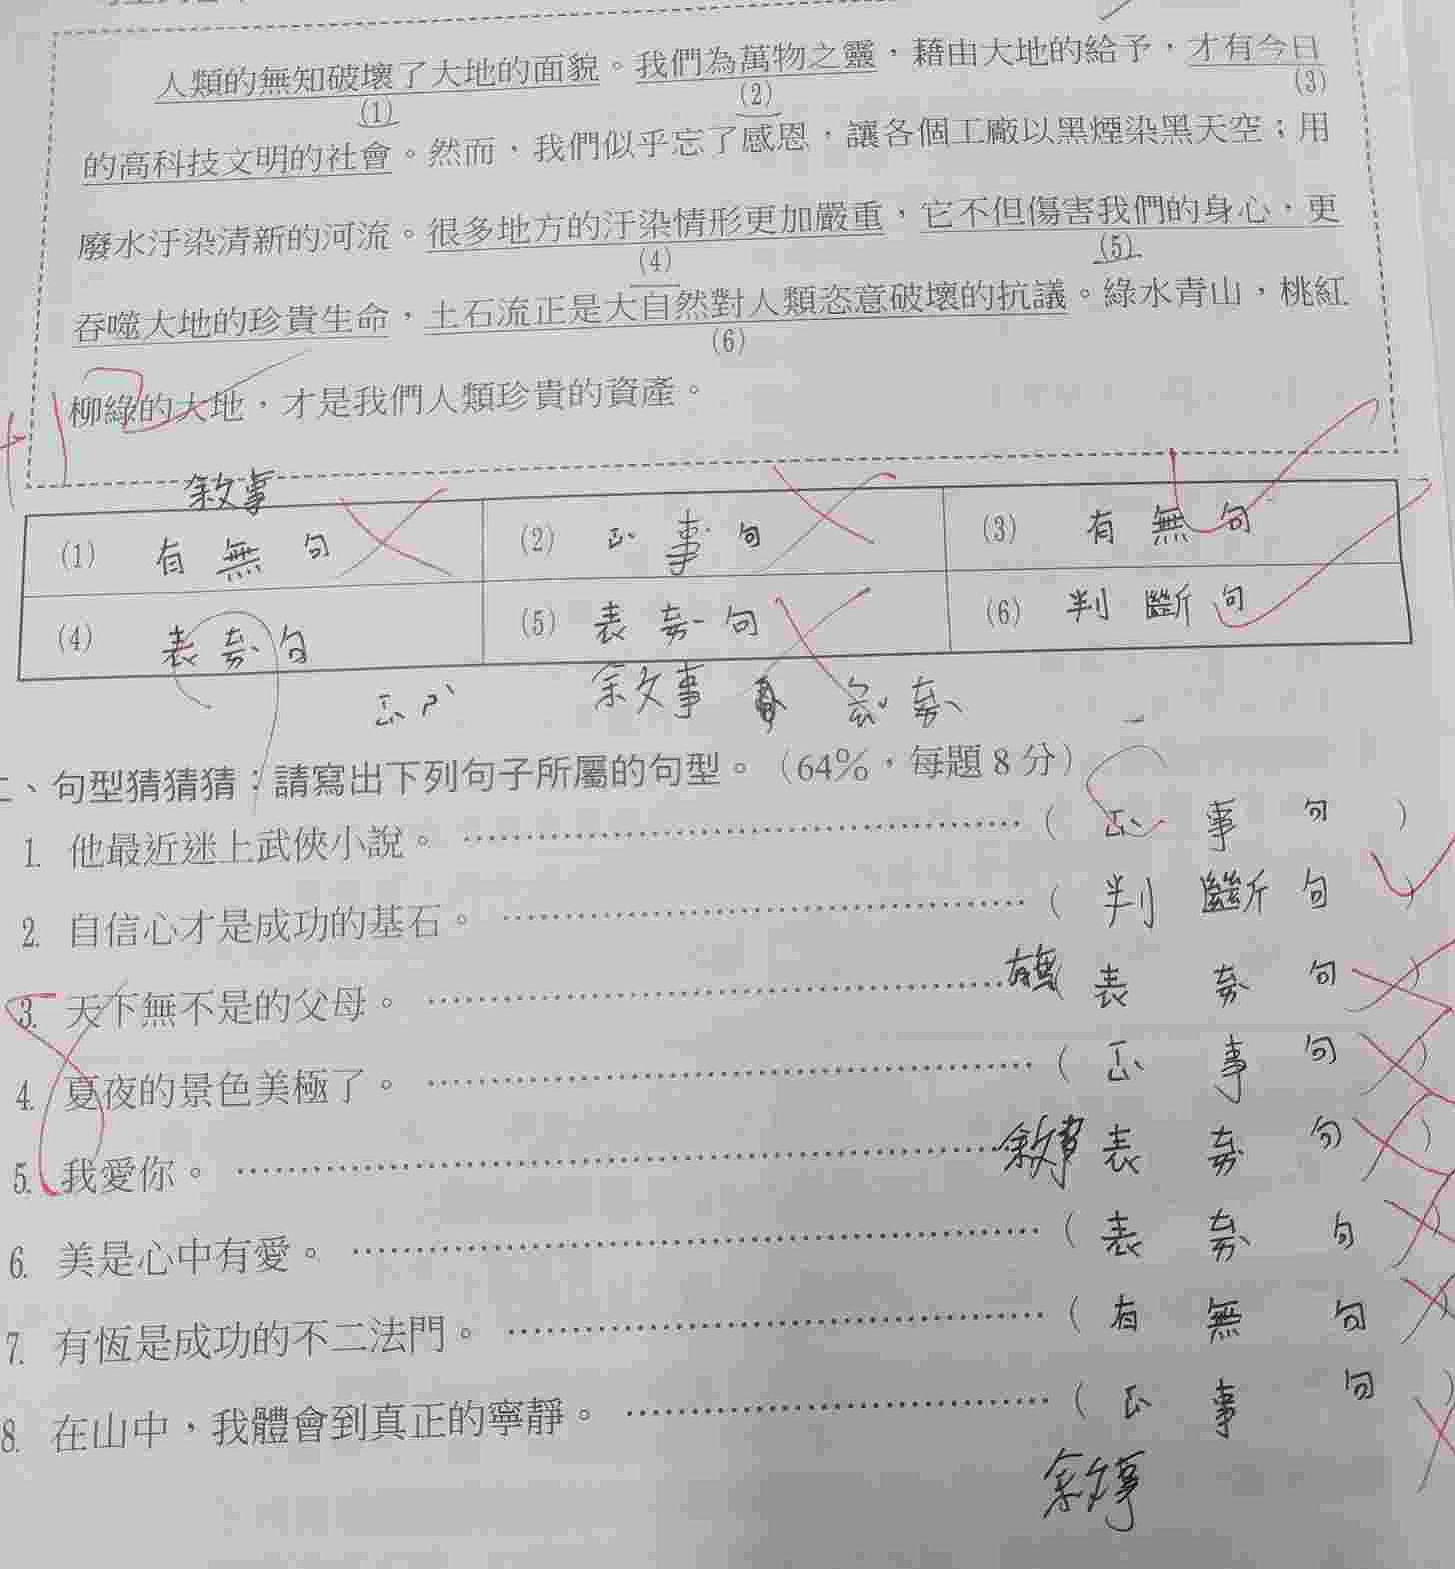 人類的無知破壞了大地的面貌。我們為萬物之靈，藉由大地的給予，才有今日
(1) (2) (3)
的高科技文明的社會。然而，我們似乎忘了感恩，讓各個工廠以黑煙染黑天空；用
廢水汙染清新的河流。很多地方的汙染情形更加嚴重，它不但傷害我們的身心，更
(4) (5)
吞噬大地的珍貴生命，土石流正是大自然對人類恣意破壞的抗議。綠水青山，桃紅
(6)
柳綠的大地，才是我們人類珍貴的資產。
敘事
(1) 有無句 (2) 事句 (3) 有無句
(4) 表句 (5) 表句 (6) 判斷句
敘事
、句型猜猜猜：請寫出下列句子所屬的句型。（64%，每題8分）
1. 他最近迷上武俠小說。…………（事句）
2. 自信心才是成功的基石。…………（判斷句）
3. 天下無不是的父母。…………有無 表句）
4. 夏夜的景色美極了。…………（事句）
5. 我愛你。…………敘事 表句）
6. 美是心中有愛。…………（表句）
7. 有恆是成功的不二法門。…………（有無句）
8. 在山中，我體會到真正的寧靜。…………（事句）
敘事